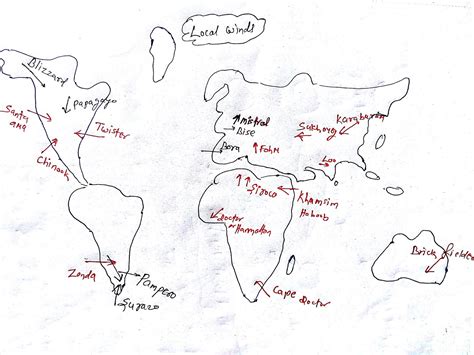 Local Winds
Blizzard
Papagayo
Santa
ana
Twister
Chinook
mistral
Bise
Bora
Fohn
Karaburan
Loo
Siroco
Khamsim
Haboob
doctor
or Harmattan
Zonda
Pampero
Cape doctor
Brick fielder